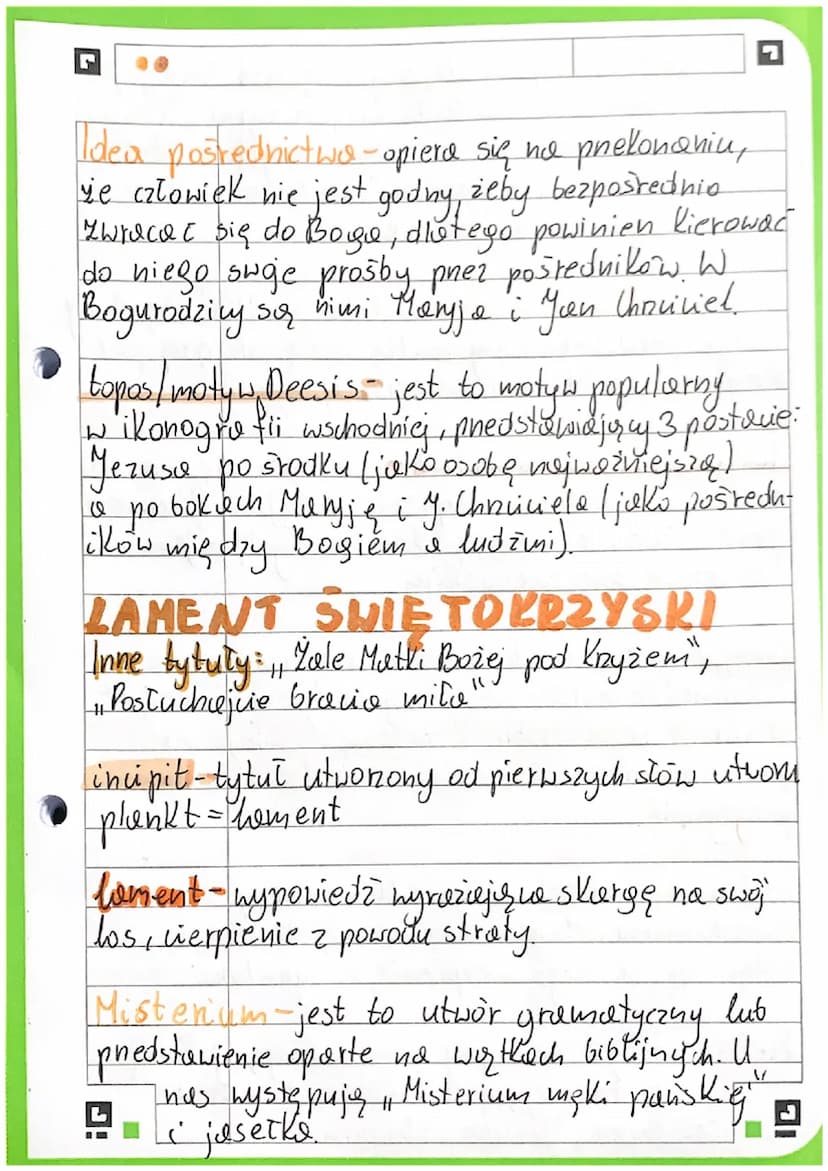 Idea pośrednictwa - opiera się na przekonaniu,
że człowiek nie jest godny, żeby bezpośrednio
zwracać się do Boga, dlatego powinien kierować
do niego swoje prośby przez pośredników. W
Bogurodzicy są nimi Maryja i Jan Chrzciciel.
topos/motyw Deesis - jest to motyw popularny
w ikonografii wschodniej, przedstawiający 3 postacie:
Jezusa po środku (jako osobę najważniejszą)
a po bokach Maryję i J. Chrzciciela (jako pośredn-
ików między Bogiem a ludźmi).
LAMENT ŚWIĘTOKRZYSKI
Inne tytuły: „Żale Matki Bożej pod Krzyżem",
„Posłuchajcie bracia miła"
incipit - tytuł utworzony od pierwszych słów utworu
plankt = lament
lament - wypowiedź wyrażająca skargę na swój
los, cierpienie z powodu straty.
Misterium - jest to utwór gramatyczny lub
przedstawienie oparte na wątkach biblijnych. U
nas występują „Misterium męki pańskiej"
i jasełka.